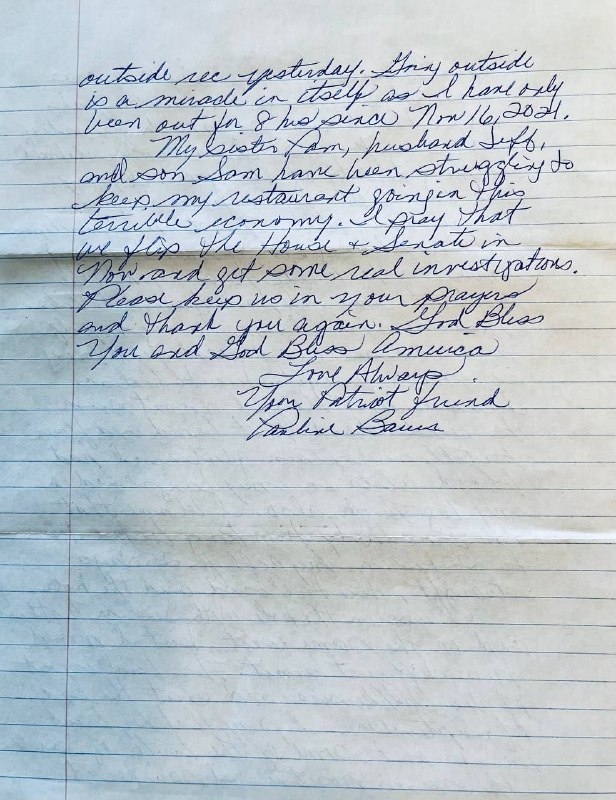 outside rec yesterday. Going outside
is a miracle in itself as I have only
been out for 8 hrs since Nov 16, 2021.
My sister Pam, husband Jeff,
and son Sam have been struggling to
keep my restaurant going in this
terrible economy. I pray that
we flip the House & Senate in
Nov. and get some real investigations.
Please keep us in your prayers
and thank you again. God Bless
You and God Bless America
Love Always,
Your Patriot friend
Pauline Bauer